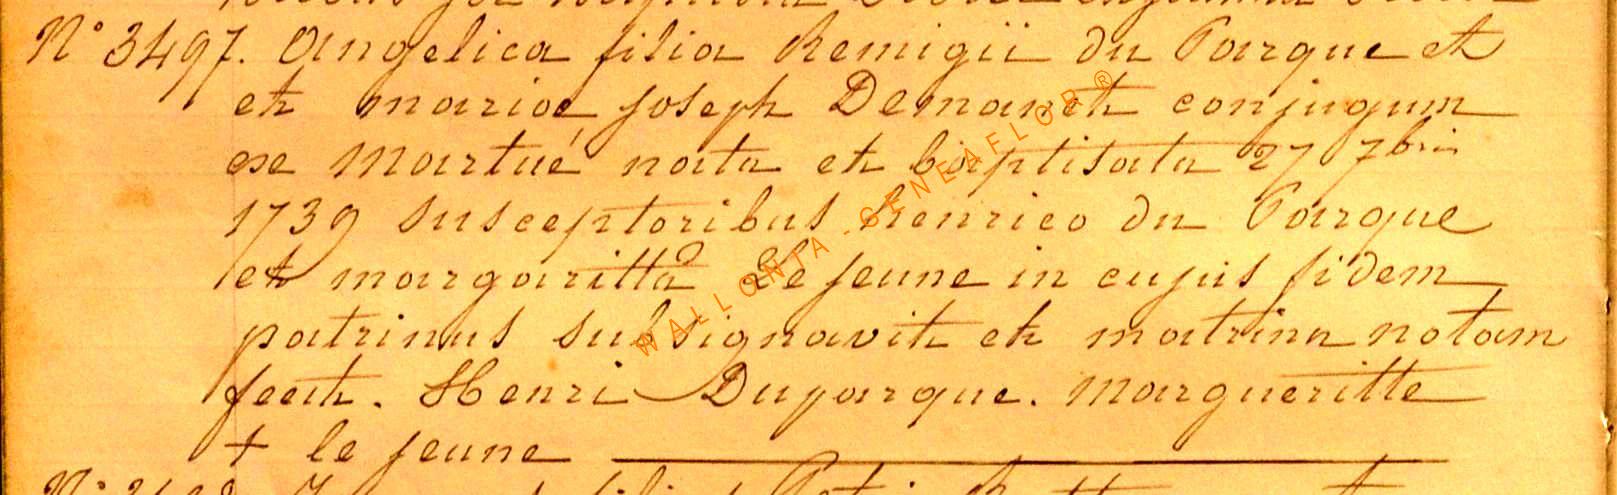 N° 3497. Angelica filia Remigii du Parque et
et mariae joseph Demaneth conjugum
ex Martué nata et baptisata 27 7bris
1739 susceptoribus henrico du Parque
et margaritta Le jeune in cujus fidem
patrinus subsignavit et matrina notam
fecit. Henri Duparque. Margueritte
+ le jeune
WALLONIA-GENEAFLOR®